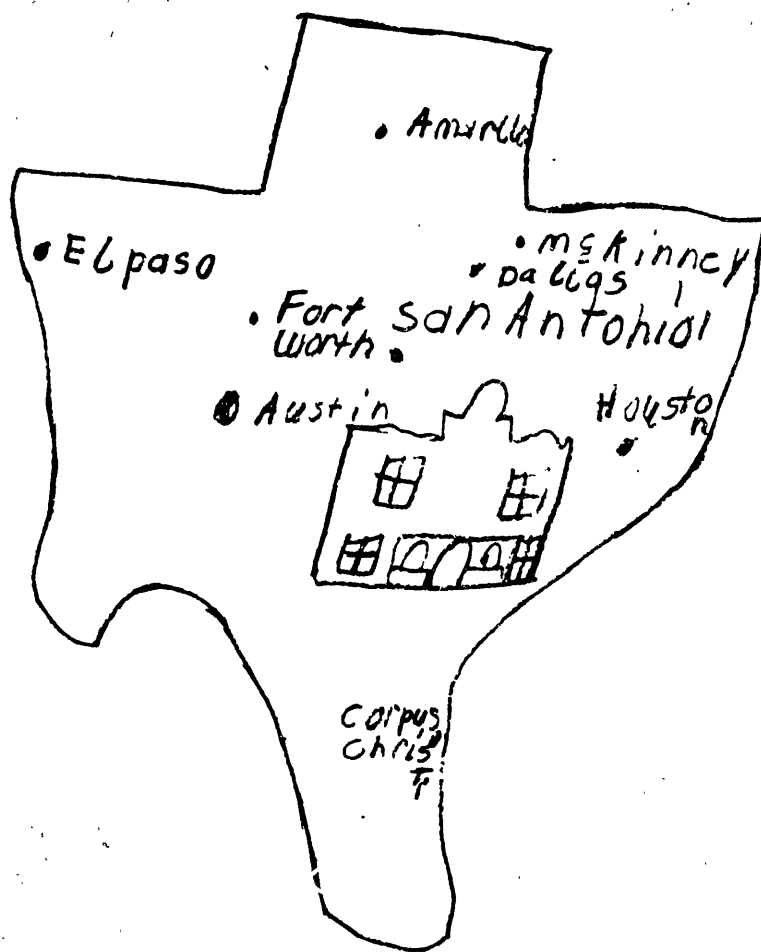 Amarillo
El paso
McKinney
Dallas
Fort
Worth
San Antonio
Austin
Housto
n
Corpus
Chris
Ti